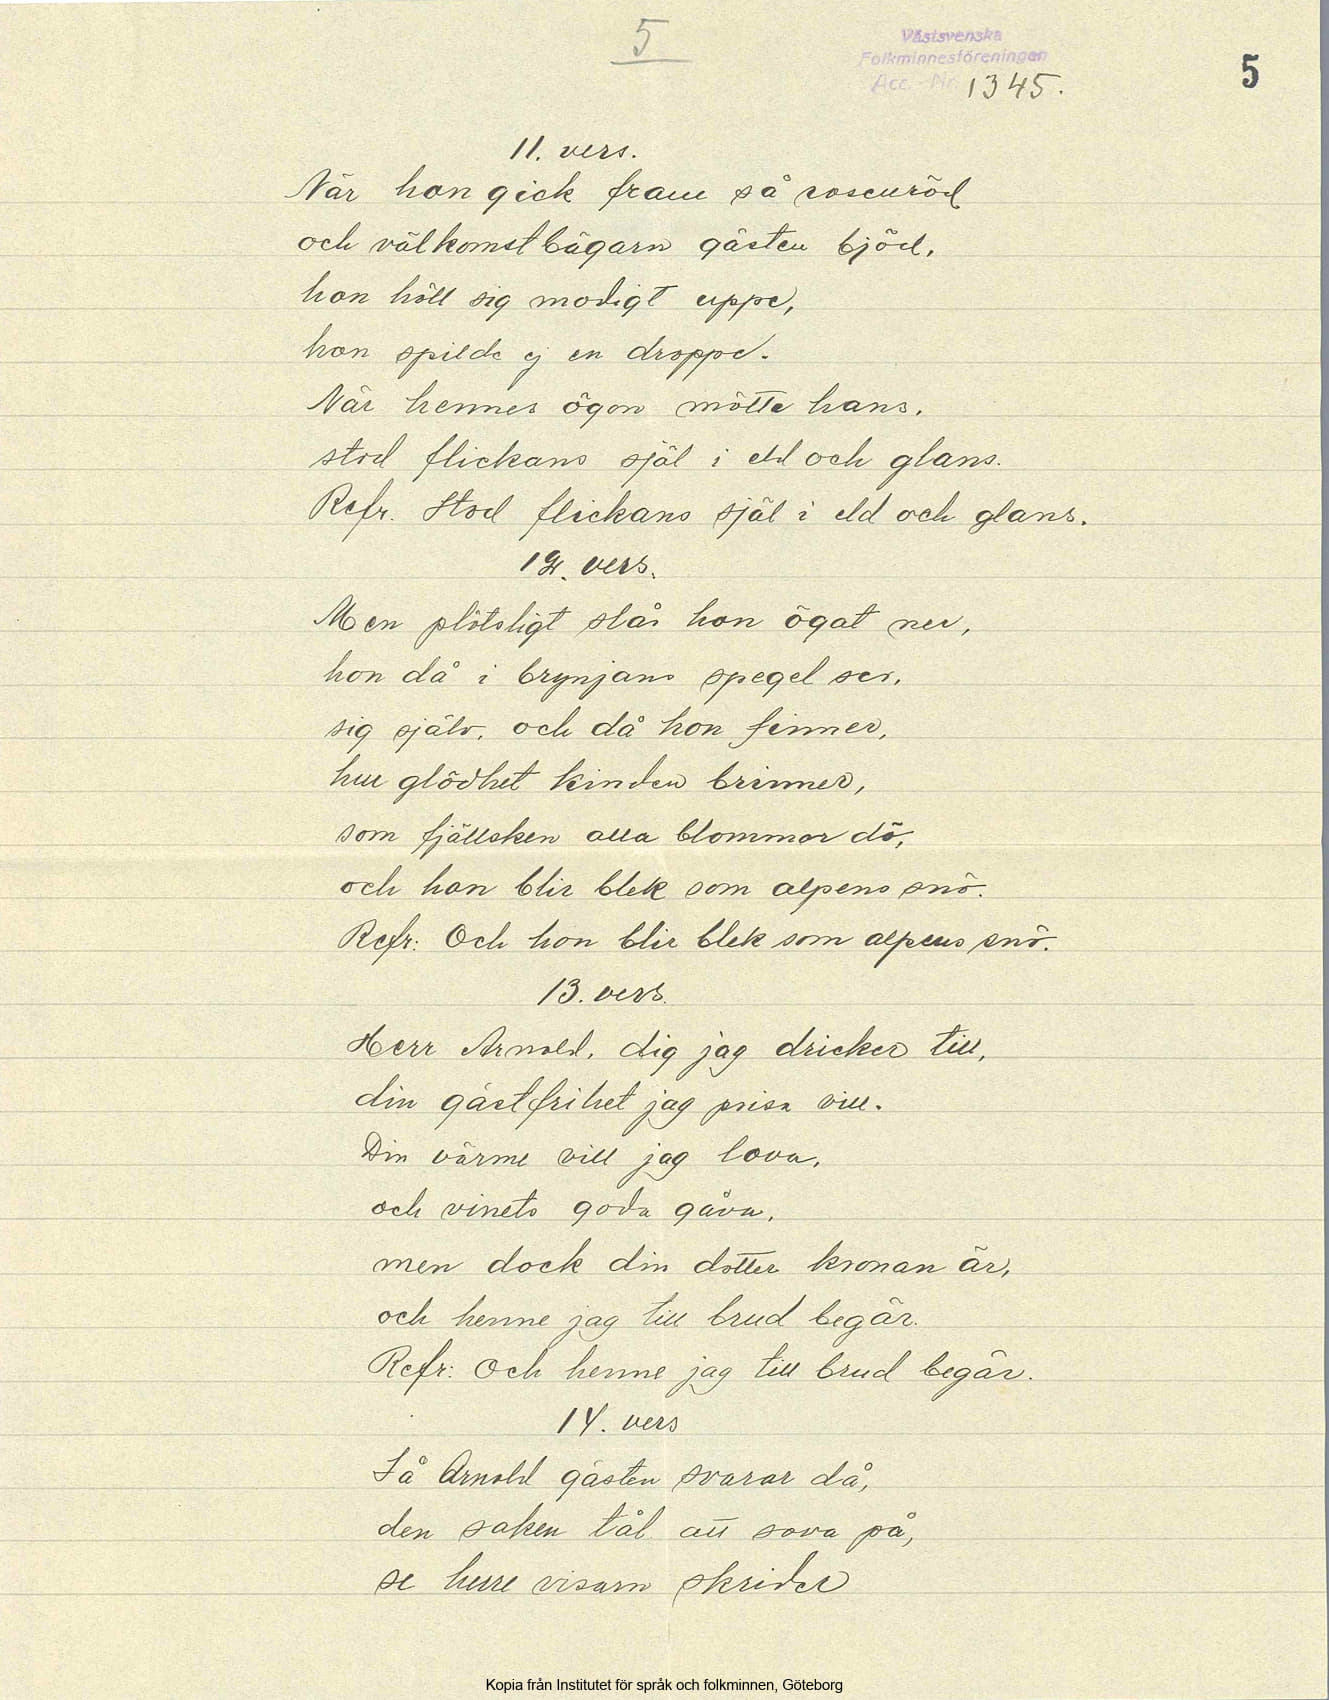 5
Västsvenska
Folkminnesföreningen
Acc. Nr. 1345.
5
11. vers.
När hon gick fram så rosenröd
och välkomstbägarn gästen bjöd,
hon höll sig modigt uppe,
hon spilde ej en droppe.
När hennes ögon mötte hans,
stod flickans själ i eld och glans.
Refr. Stod flickans själ i eld och glans.
12. vers.
Men plötsligt slår hon ögat ner,
hon då i brynjans spegel ser,
sig själv, och då hon finner,
hur glödhet kinden brinner,
som fjällsken alla blommor dö,
och hon blir blek som alpens snö.
Refr: Och hon blir blek som alpens snö.
13. vers.
Herr Arnold, dig jag dricker till,
din gästfrihet jag prisa vill.
Din värme vill jag lova,
och vinets goda gåva,
men dock din dotter kronan är,
och henne jag till brud begär.
Refr: Och henne jag till brud begär.
14. vers
Så Arnold gästen svarar då,
den saken tål att sova på,
se hurre visarn skrider
Kopia från Institutet för språk och folkminnen, Göteborg